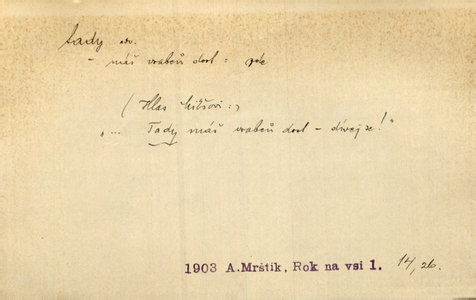 tady adv.
- máš vrabců dost : zde
(Hlas Mišovi:)
"... Tady máš vrabců dost – dívej se!"
1903 A.Mrštík, Rok na vsi 1. 14, 26.